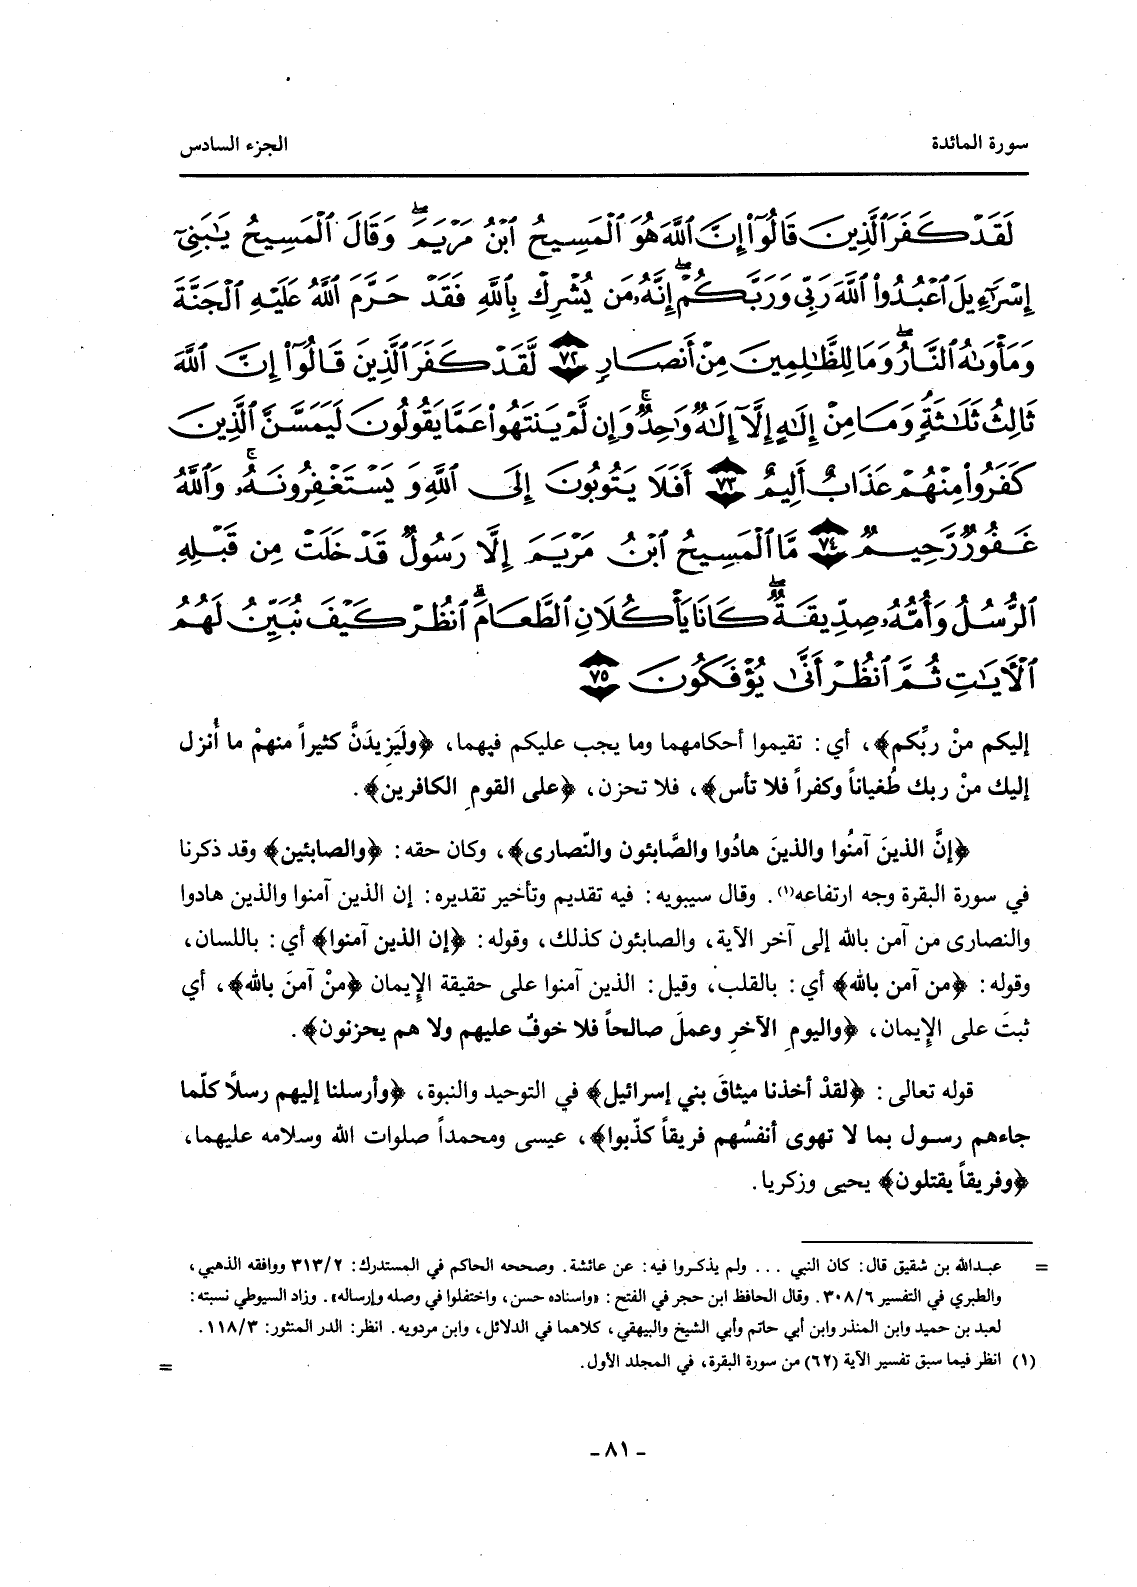 سورة المائدة
الجزء السادس
لَقَدْ كَفَرَ ٱلَّذِينَ قَالُوٓا۟ إِنَّ ٱللَّهَ هُوَ ٱلْمَسِيحُ ٱبْنُ مَرْيَمَ ۖ وَقَالَ ٱلْمَسِيحُ يَـٰبَنِىٓ
إِسْرَٰٓءِيلَ ٱعْبُدُوا۟ ٱللَّهَ رَبِّى وَرَبَّكُمْ ۖ إِنَّهُۥ مَن يُشْرِكْ بِٱللَّهِ فَقَدْ حَرَّمَ ٱللَّهُ عَلَيْهِ ٱلْجَنَّةَ
وَمَأْوَىٰهُ ٱلنَّارُ ۖ وَمَا لِلظَّـٰلِمِينَ مِنْ أَنصَارٍ ٧٢ لَّقَدْ كَفَرَ ٱلَّذِينَ قَالُوٓا۟ إِنَّ ٱللَّهَ
ثَالِثُ ثَلَـٰثَةٍ ۘ وَمَا مِنْ إِلَـٰهٍ إِلَّآ إِلَـٰهٌ وَٰحِدٌ ۚ وَإِن لَّمْ يَنتَهُوا۟ عَمَّا يَقُولُونَ لَيَمَسَّنَّ ٱلَّذِينَ
كَفَرُوا۟ مِنْهُمْ عَذَابٌ أَلِيمٌ ٧٣ أَفَلَا يَتُوبُونَ إِلَى ٱللَّهِ وَيَسْتَغْفِرُونَهُۥ ۚ وَٱللَّهُ
غَفُورٌ رَّحِيمٌ ٧٤ مَّا ٱلْمَسِيحُ ٱبْنُ مَرْيَمَ إِلَّا رَسُولٌ قَدْ خَلَتْ مِن قَبْلِهِ
ٱلرُّسُلُ وَأُمُّهُۥ صِدِّيقَةٌ ۖ كَانَا يَأْكُلَانِ ٱلطَّعَامَ ۗ ٱنظُرْ كَيْفَ نُبَيِّنُ لَهُمُ
ٱلْـَٔايَـٰتِ ثُمَّ ٱنظُرْ أَنَّىٰ يُؤْفَكُونَ ٧٥
إليكم منْ ربِّكم﴾، أي: تقيموا أحكامهما وما يجب عليكم فيهما، ﴿ولَيَزِيدَنَّ كثيراً منهمْ ما أُنزل
إليك منْ ربك طُغياناً وكفراً فلا تأس﴾، فلا تحزن، ﴿على القومِ الكافرين﴾.
﴿إنَّ الذينَ آمنُوا والذينَ هادُوا والصَّابئون والنّصارى﴾، وكان حقه: ﴿والصابئين﴾ وقد ذكرنا
في سورة البقرة وجه ارتفاعه(١). وقال سيبويه: فيه تقديم وتأخير تقديره: إن الذين آمنوا والذين هادوا
والنصارى من آمن بالله إلى آخر الآية، والصابئون كذلك، وقوله: ﴿إن الذين آمنوا﴾ أي: باللسان،
وقوله: ﴿من آمن بالله﴾ أي: بالقلب، وقيل: الذين آمنوا على حقيقة الإيمان ﴿منْ آمنَ بالله﴾، أي
ثبتَ على الإيمان، ﴿واليومِ الآخرِ وعملَ صالحاً فلا خوفٌ عليهم ولا هم يحزنون﴾.
قوله تعالى: ﴿لقدْ أخذنا ميثاقَ بني إسرائيل﴾ في التوحيد والنبوة، ﴿وأرسلنا إليهم رسلاً كلّما
جاءهم رسول بما لا تهوى أنفسُهم فريقاً كذّبوا﴾، عيسى ومحمداً صلوات الله وسلامه عليهما،
﴿وفريقاً يقتلون﴾ يحيى وزكريا.
= عبدالله بن شقيق قال: كان النبي ... ولم يذكروا فيه: عن عائشة. وصححه الحاكم في المستدرك: ٣١٣/٢ ووافقه الذهبي،
والطبري في التفسير ٣٠٨/٦. وقال الحافظ ابن حجر في الفتح: «واسناده حسن، واختفلوا في وصله وإرساله». وزاد السيوطي نسبته:
لعبد بن حميد وابن المنذر وابن أبي حاتم وأبي الشيخ والبيهقي، كلاهما في الدلائل، وابن مردويه. انظر: الدر المنثور: ١١٨/٣.
(١) انظر فيما سبق تفسير الآية (٦٢) من سورة البقرة، في المجلد الأول. =
- ٨١ -